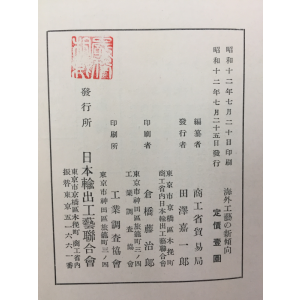 昭和十二年七月二十日印刷
昭和十二年七月二十五日發行
海外工藝の新傾向
定價壹圓
編纂者 商工省貿易局
發行者 田澤嘉一郎
東京市京橋區木挽町
商工省內日本輸出工藝聯合會
印刷者 倉橋藤治郎
東京市神田區旅籠町三ノ四
工業調查協會
印刷所 工業調查協會
東京市神田區旅籠町三ノ四
發行所 日本輸出工藝聯合會
東京市京橋區木挽町商工省內
振替東京五一六六一番